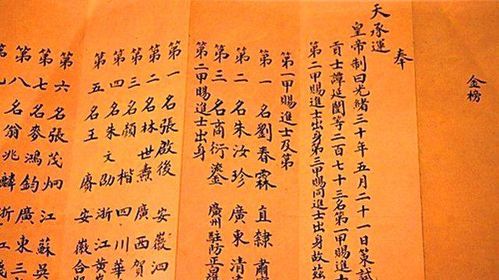 金榜
奉
天承運
皇帝制曰光緒三十年五月二十一日策試
貢士譚延闓等二百七十三名第一甲賜進士
第二甲賜進士出身第三甲賜同進士出身故茲
第一甲賜進士及第
第一名劉春霖 直隸肅
第二名朱汝珍 廣東清
第三名商衍鎏 廣州駐防正白
第二甲賜進士出身
第一名張啟後 安徽泗
第二名林世燾 廣西賀
第三名顏楷 四川華
第四名朱文劭 浙江黃
第五名王賡 安徽合
第六名張茂炯 江蘇吳
第七名麥鴻鈞 廣東三
第八名翁兆麟 浙江
第九